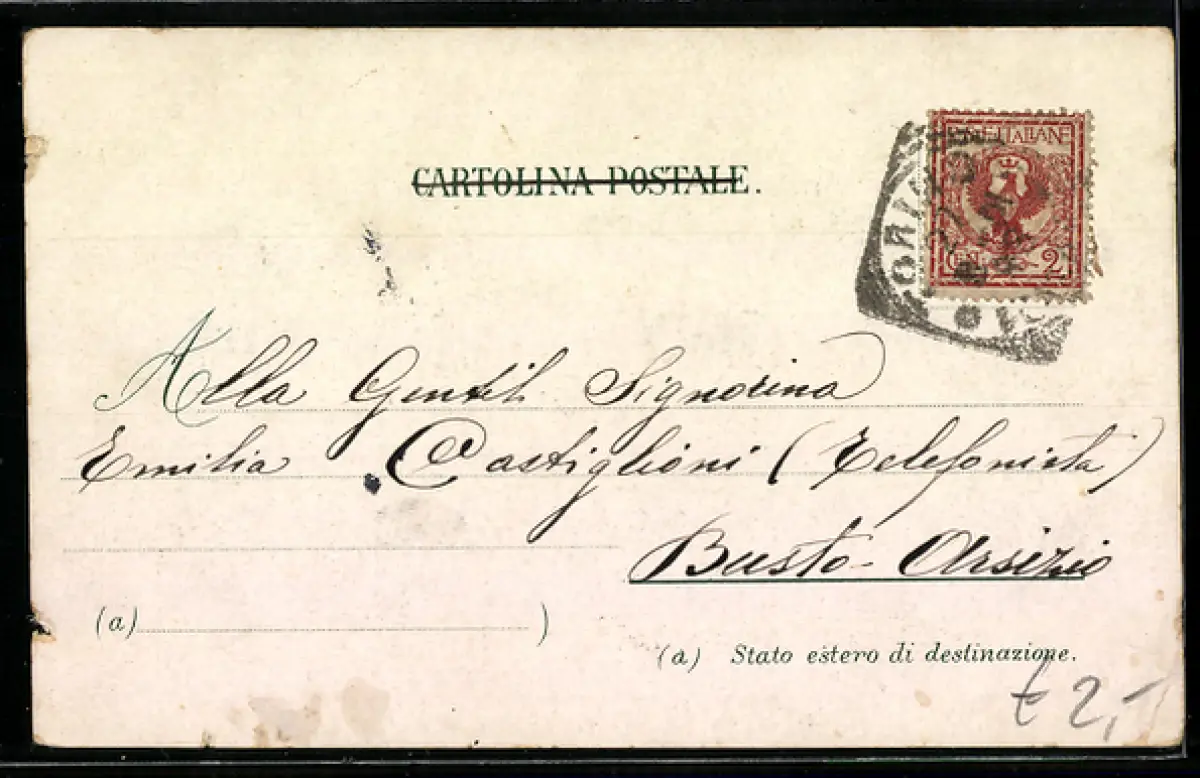 CARTOLINA POSTALE.
POSTE ITALIANE
CENT. 2
Alla Gentil. Signorina
Emilia Castiglioni (Telefonista)
Busto-Arsizio
(a) )
(a) Stato estero di destinazione.
€ 2,-